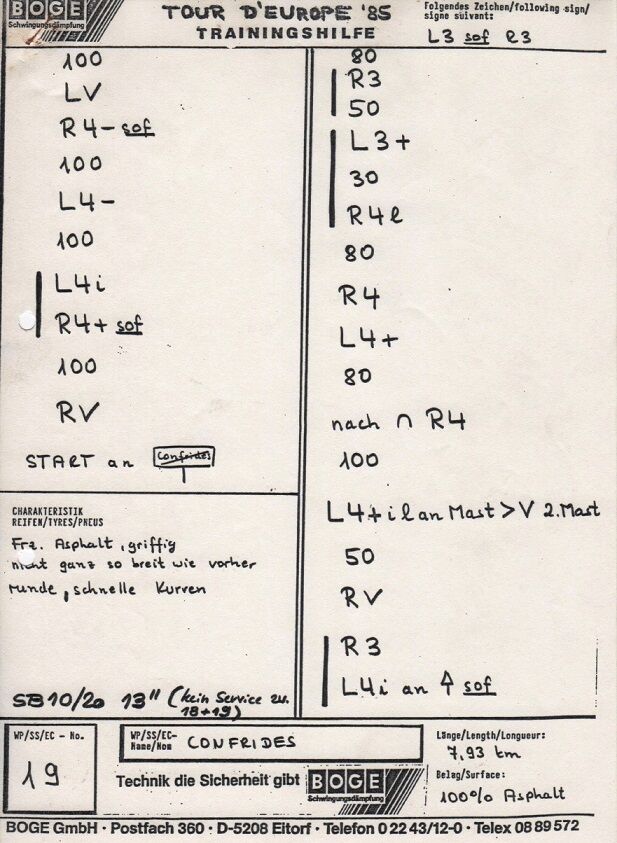 BOGE
Schwingungsdämpfung
TOUR D'EUROPE '85
TRAININGSHILFE
Folgendes Zeichen/following sign/
signe suivant:
L3 sof R3
100
LV
R4- sof
100
L4-
100
L4i
R4+ sof
100
RV
START an Confrides
CHARAKTERISTIK
REIFEN/TYRES/PNEUS
Frz. Asphalt, griffig
nicht ganz so breit wie vorher
runde, schnelle Kurven
SB10/20 13" (kein Service zw.
18+19)
80
R3
50
L3+
30
R4l
80
R4
L4+
80
nach ∩ R4
100
L4+il an Mast > V 2.Mast
50
RV
R3
L4i an sof
WP/SS/EC - No.
19
WP/SS/EC-
Name/Nom CONFRIDES
Technik die Sicherheit gibt BOGE
Schwingungsdämpfung
Länge/Length/Longueur:
7,93 km
Belag/Surface:
100% Asphalt
BOGE GmbH · Postfach 360 · D-5208 Eitorf · Telefon 0 22 43/12-0 · Telex 08 89 572